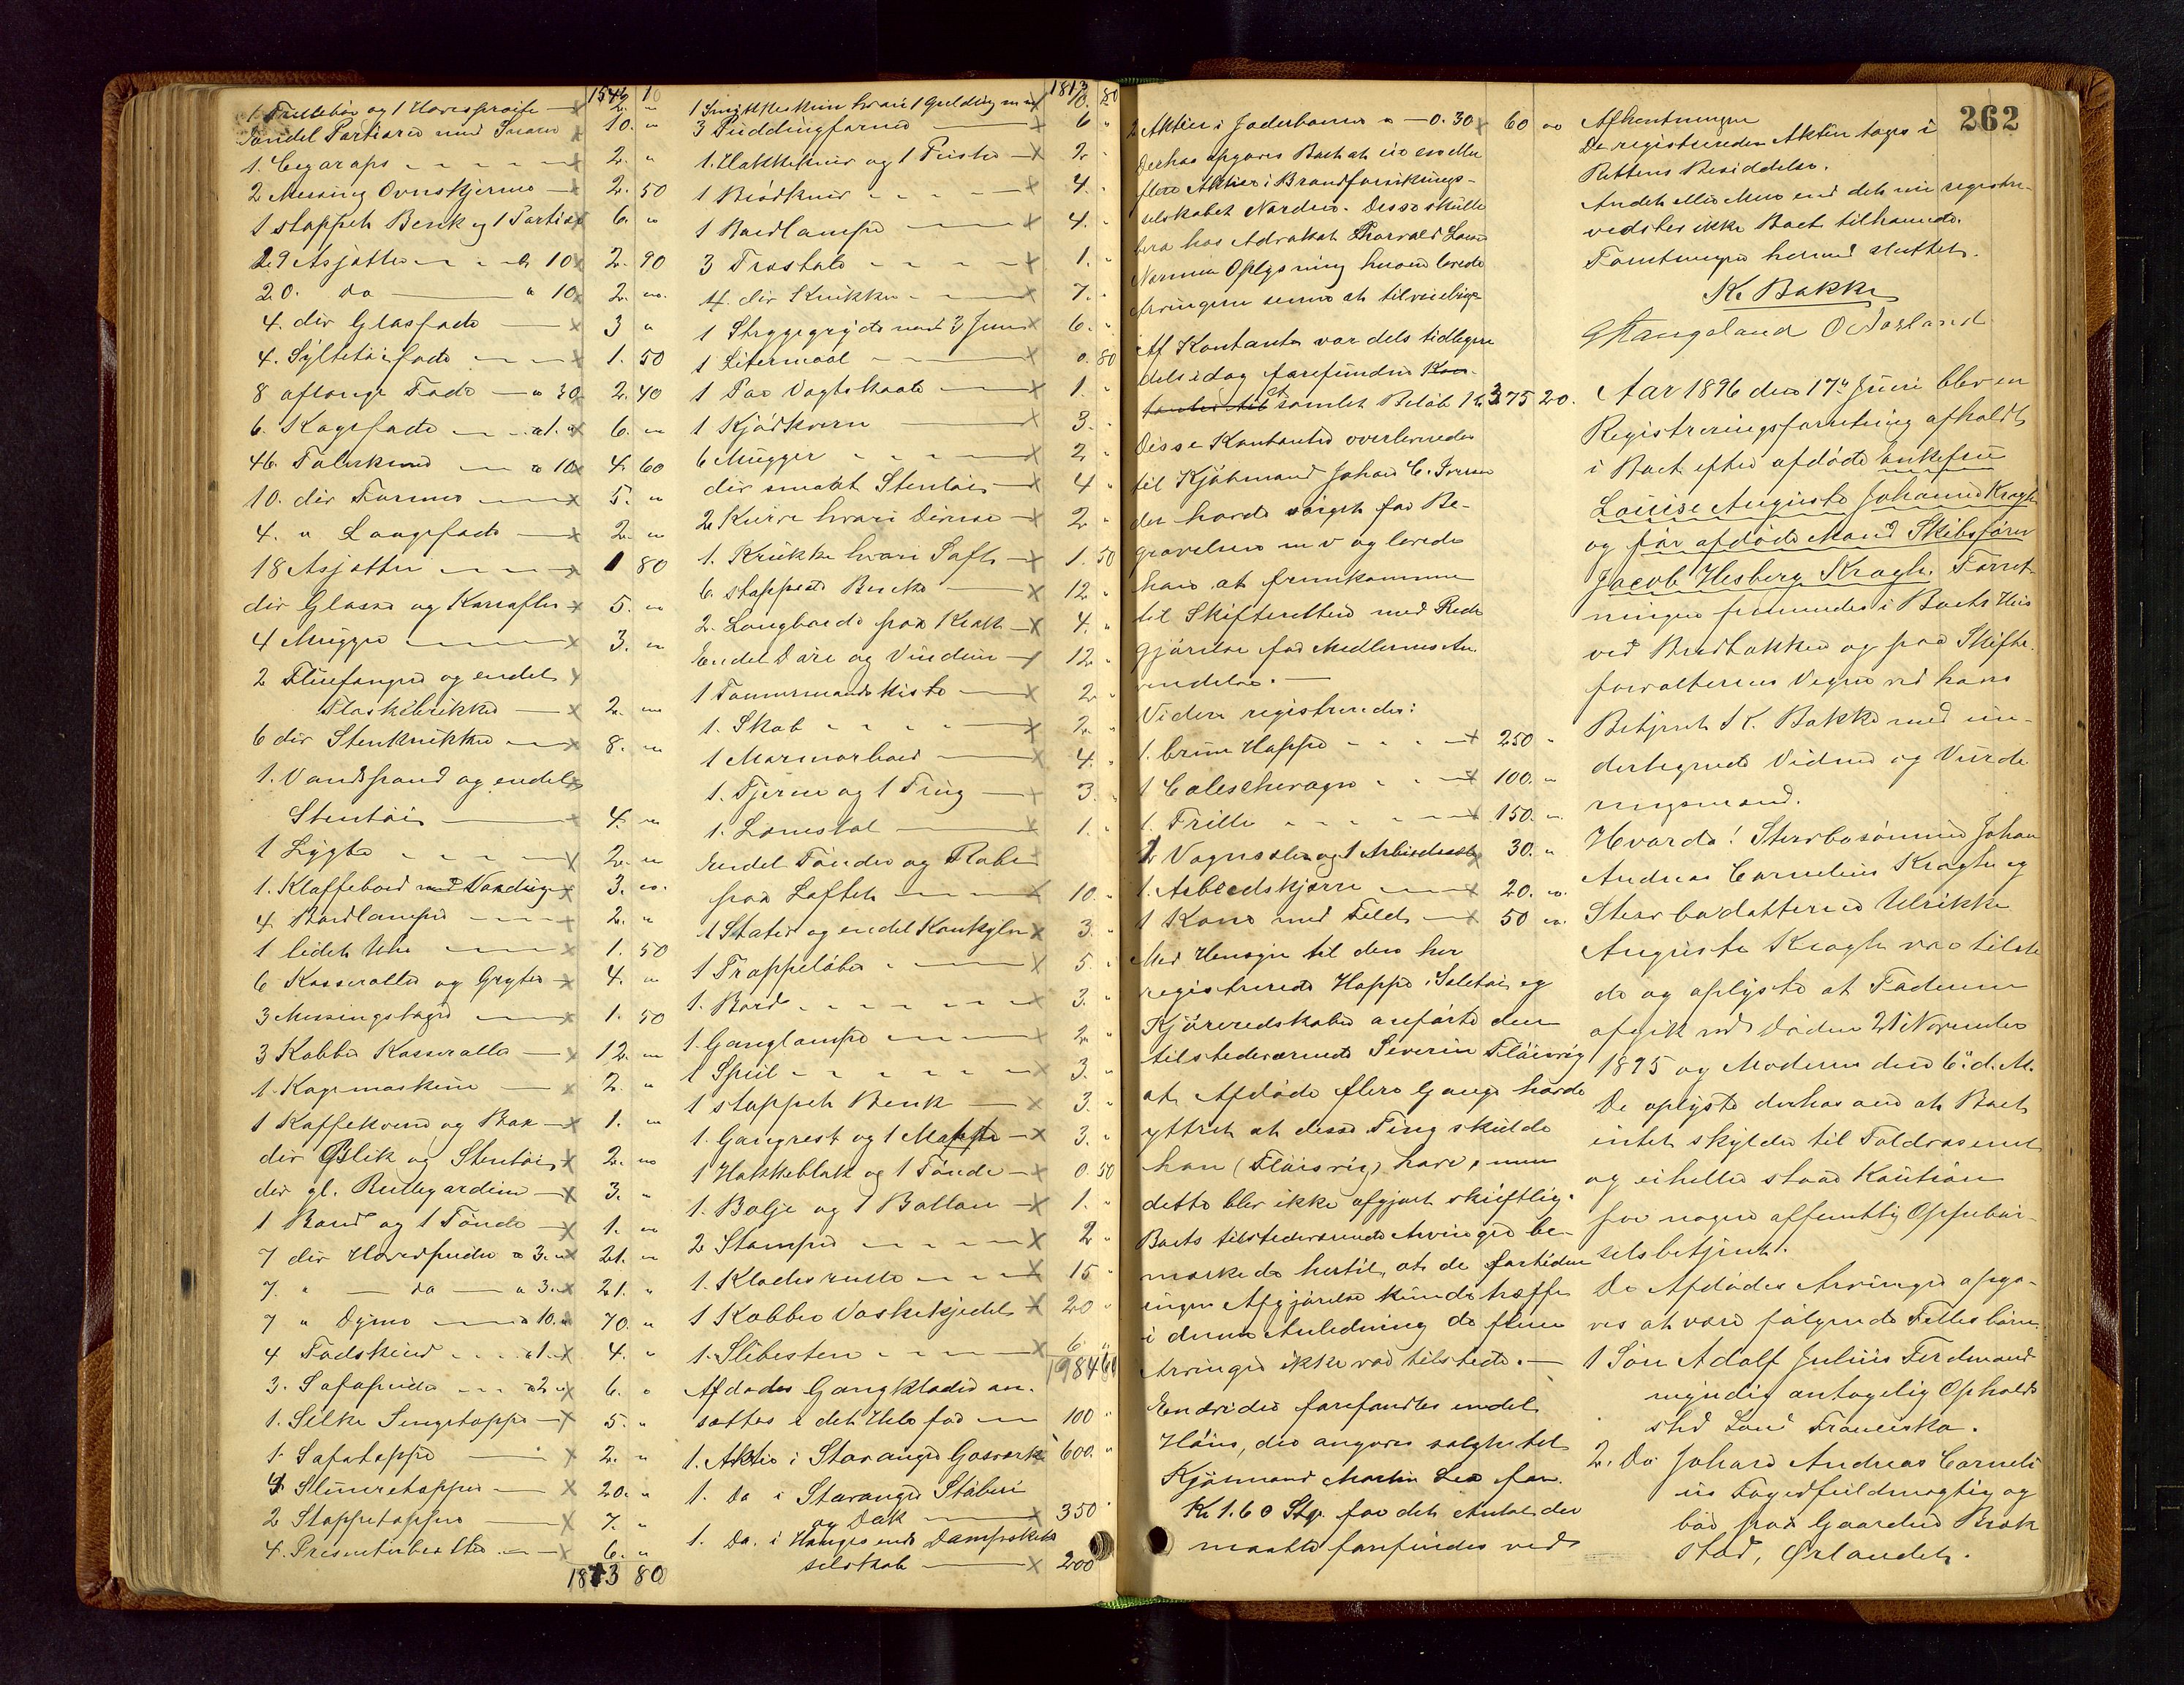 1546 10
1 Trillebör og 1 Havesprøite — 2. "
Endel Portierer med Snore 10. "
1. Cigaraps — 2. "
2 Messing Ovnskjerme — 2. 50
1 stoppet Benk og 1 Portier 6. "
29 Asjetter — a 10 2. 90
20. do — " 10 2. "
4. div Glasfade — 3 "
4. Syltetöifade — 1. 50
8 aflange Fade — a 30 2. 40
6. Kagefade — a 1. " 6. "
46. Talerkener — a 10 4. 60
10. div Former — 5. "
4. " Langefade — 2. "
18 Asjetter — 1 80
div Glasse og Karafler 5. "
4 Mugger — 3. "
2 Fluefangere og endel
Flaskebrikker — 2. "
6 div Stenkrukker — 8. "
1. Vandspand og endel
Stentöi — 4. "
1 Lygte — 2. "
1. Klaffebord med Voxdug 3. "
4 Bordlamper — 2. "
1 lidet Uhr — 1. 50
6 Kasseroller og Gryter 4. "
3 Messingstager — 1. 50
3 Kobber Kasseroller — 12. "
1. Kagemaskine — 2. "
1 Kaffekvern og Box — 1. "
div Blik og Stentöi 2. "
div gl. Rullegardiner — 3. "
1 Bord og 1 Tönde — 1. "
7 div Hovedputer a 3. " 21. "
7. " — do — a 3. " 21. "
7 " Dyner — a 10. " 70. "
4 Fodskind — a 1. 4. "
3. Sofaputer — a 2. " 6. "
1. Silke Sengetæppe — 5. "
1. Sofatæppe — 2. "
4 Slumretæpper — 20. "
2 Stoppetæpper — 7. "
4. Presenterbretter — 6. "
1813 80
1813 80
3 Puddingformer — 6 "
1. Hakkekniv og 1 Rist — 2. "
1 Brödkniv — 4. "
1 Bordlampe — 4. "
3 Træstole — 1. "
4. div Krukker — 7. "
1 Steggegryde med 3 6. "
1 Litermaal — 0. 80
1 Par Vægtskaale — 1. "
1 Kjödkvern — 3. "
6 Mugger — 2 "
div smaat Stentöi — 4 "
2 Kurve hvori Diverse — 2 "
1. Krukke hvori Saft — 1. 50
6. stoppede Benke — 12. "
2. Langborde paa Krakk 4. "
Endel Döre og Vinduer — 12. "
1 Tømmermandskiste — 2. "
1. Skab — 2. "
1 Marmorbord — 4. "
1. Tjerne og 1 Ting — 3. "
1. Lænestol — 1. "
Endel Tönder og
paa Loftet — 10. "
1 Stativ og endel Konkylier 3. "
1 Trappelöber — 5. "
1. Bord — 3. "
1. Ganglampe — 2. "
1 Speil — 3. "
1 stoppet Benk — 3. "
1. Gangrest og 1 Matte — 3. "
1 Hakkeblok og 1 Tönde — 0. 50
1. Balje og 1 Ballon — 1. "
2 Stamper — 2 "
1. Klæderulle — 15 "
1 Kobber Vaskekjedel — 20 "
1. Slibesten — 6 "
1984 60
Afdødes Gangklæder an-
sættes i det Hele for — 100 "
1. Aktie i Stavanger Gasværk 600. "
1. Do i Stavanger Stöberi
og Dok — 350 "
1. Do. i Haugesunds Dampskibs
selskab — 200
262
2 Aktier i Jæderbanen a — 0. 30 60 "
Derhos opgaves Boet at eie en eller
flere Aktier i Brandforsikrings-
selskabet Norden. Disse skulle
bero hos Advokat Thorvald
Nærmere Oplysning herom lovede
Arvingerne senere at tilveiebringe
Af Kontanter var dels tidligere
dels idag forefundne
et samlet Beløb 375 20.
Disse Kontanter overleveredes
til Kjöbmand Johan C. Iversen
der havde sörget for Be-
gravelsen m v og lovede
han at fremkomme
til Skifteretten med Rede
gjörelse for Midlernes An-
vendelse. —
Videre registreredes:
1. brun Hoppe — 250 "
1 Calescherogn — 100. "
1. Trille — 150. "
2 Vognsæler og 1 Arbeidssele 30. "
1. Arbeidskjærre — 20. "
1 Kane med Feld — 50 "
Med Hensyn til den her
registrerede Hoppe, Seletöi og
Kjöreredskaber anförte den
tilstedeværende Severin Flöisvig
at Afdöde flere Gange havde
yttret at disse Ting skulde
han (Flöisvig) have, men
dette blev ikke afgjort skriftlig.
Boets tilstedeværende Arvinger be-
mærkede hertil, at de fortiden
ingen Afgjörelse kunde træffe
i denne Anledning da flere
Arvinger ikke var tilstede. —
Endvidere forefandtes endel
Höns, der angaves solgte til
Kjöbmand Martin Lea for
Kr 1.60 Stp. for det Antal der
maatte forefindes ved
Afhentningen
De registrerede Aktier tages i
Rettens Besiddelse.
Andet eller Mere end det nu registre-
vedstes ikke Boet tilhørende.
Forretningen hermed sluttet.
K. Bakke
G Stangeland O Aarland
Aar 1896 den 17de Juni blev en
Registreringsforretning afholdt
i Boet efter afdöde Enkefru
Louise Augusta Johanne Kragh
og før afdöde Mand Skibsförer
Jacob Hesberg Kragh. Forret-
ningen fremmedes i Boets Hus
ved Bredbakken og paa Skifte-
forvalterens Vegne ved hans
Betjent K. Bakke med un-
dertegnede Vidner og Vurde-
ringsmænd.
Hvorda! Stervbosönnen Johan
Andreas Cornelius Kragh og
Stervbodatteren Ulrikke
Augusta Kragh var tilste-
de og oplyste at Faderen
afgik ved Döden 21 November
1895 og Moderen den 6te d. M.
De oplyste derhos at Boet
intet skylder til Toldvæsenet
og eiheller staar Kaution
for nogen offentlig Oppebör-
selsbetjent.
De Afdödes Arvinger opga-
ves at være fölgende Fællesbörn:
1 Sön Adolf Julius Ferdinand
myndig antagelig Opholds
sted San Francisko.
2. Do Johan Andreas Corneli-
us Fogedfuldmægtig og
bor paa Gaarden Bræk
stad, Ørlandet.